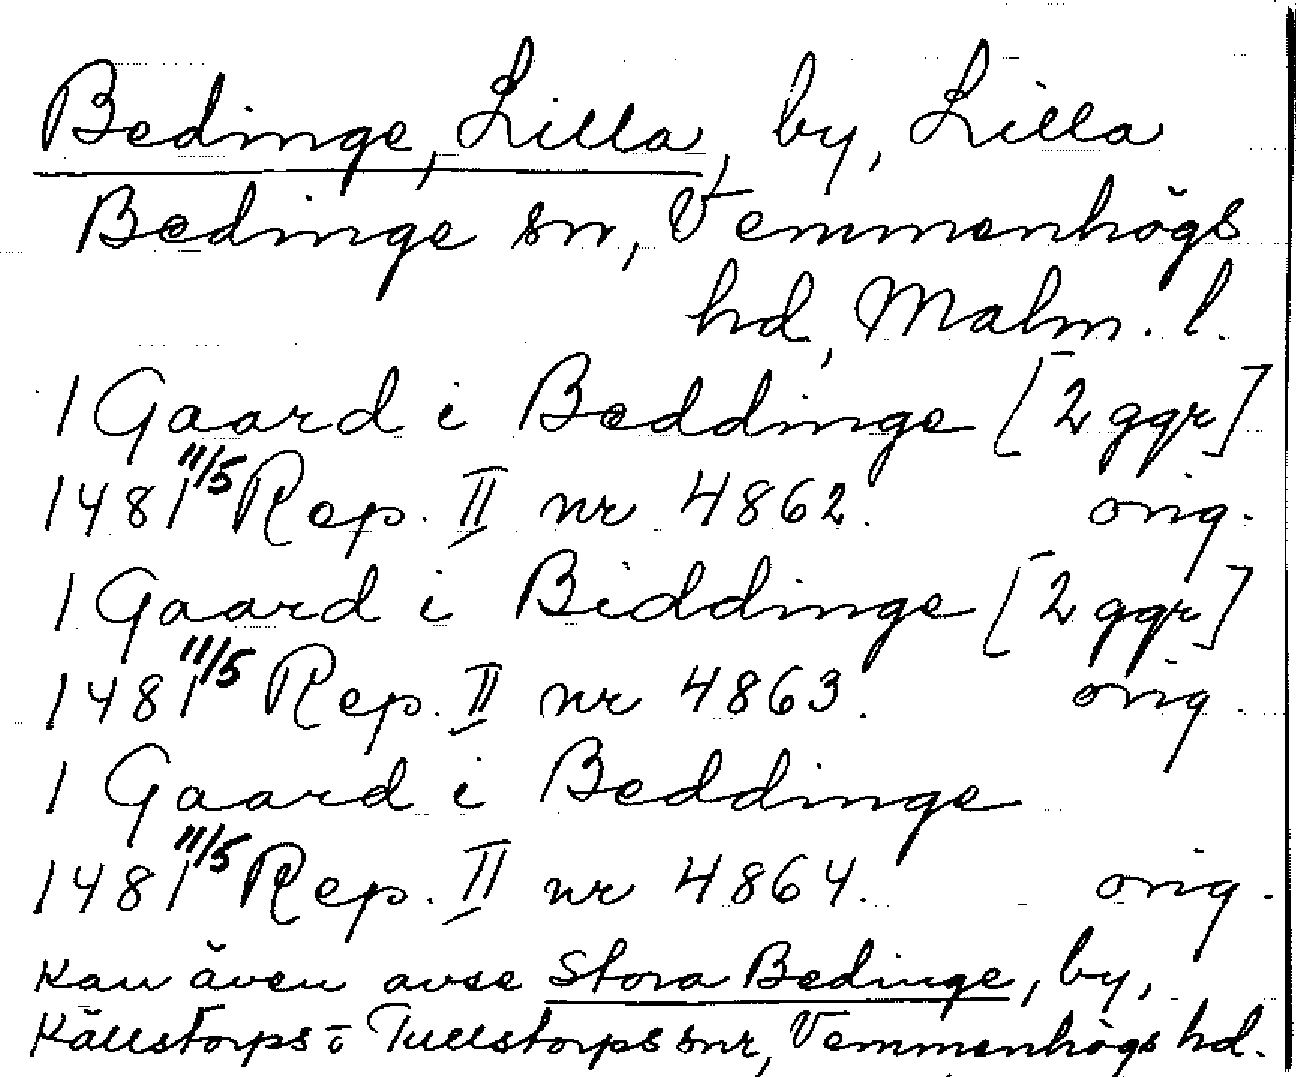 Bedinge, Lilla, by, Lilla
Bedinge sn, Vemmenhögs
hd, Malm. l.
1 Gaard i Beddinge [2 ggr]
1481 11/5 Rep. II nr 4862. orig.
1 Gaard i Biddinge [2 ggr]
1481 11/5 Rep. II nr 4863. orig.
1 Gaard i Beddinge
1481 11/5 Rep. II nr 4864. orig.
Kan även avse Stora Bedinge, by,
Källstorps o Tullstorps snr, Vemmenhögs hd.